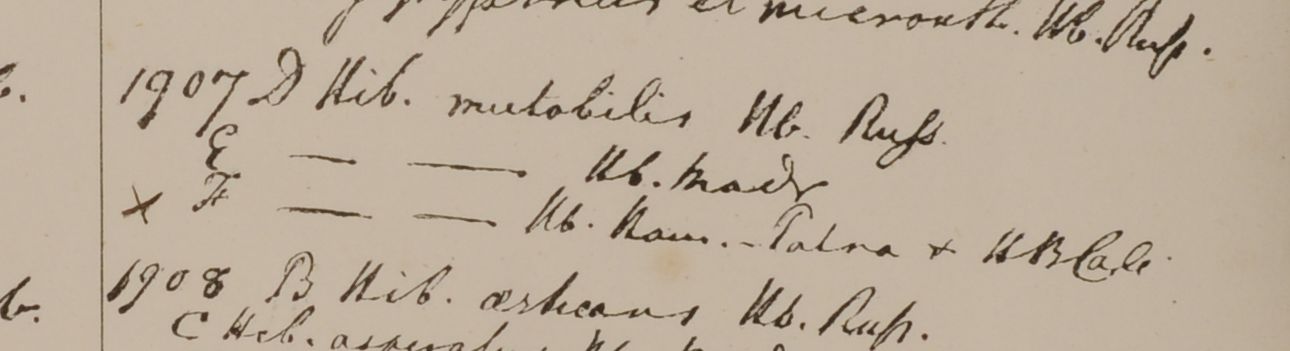 et microuth. Hb. Russ.
1907 D Hib. mutabilis Hb. Russ.
E — — Hb. Madr
x F — — Hb. Ham. - Patna + HBCalc
1908 B Hib. æstuans Hb. Russ.
C Hib.
b.